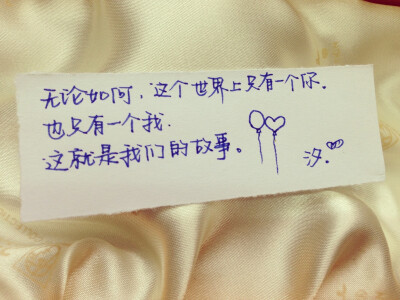 无论如何，这个世界上只有一个你．
也只有一个我．
这就是我们的故事。
汐．